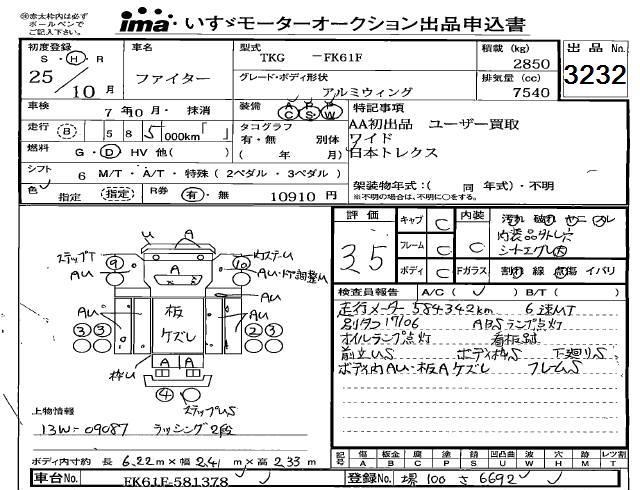 ㊟赤太枠内は必ず
ボールペンで
ご記入下さい。
ima いすゞモーターオークション出品申込書
初度登録
S・H・R
25 / 10 月
車名
ファイター
型式
TKG -FK61F
グレード・ボディ形状
アルミウィング
積載 (kg)
2850
排気量 (cc)
7540
出品 No.
3232
車検
7 年10月・ 抹消
装備
AC PS PW
特記事項
AA初出品 ユーザー買取
ワイド
日本トレクス
走行
8 58 5 000km「 」
タコグラフ
有・無 別体
( 年 月)
燃料
G・D HV 他( )
シフト
6 M/T・A/T・特殊 (2ペダル・3ペダル)
架装物年式:( 同 年式)・不明
※不明の場合は、不明に○をする。
色
指定 (指定)
R券
有・無 10910 円
評価
35
キャブ C
フレーム C
ボディ C
内装
C
汚れ 破れ ヤニ スレ
内装品外し穴
シートエグレ大
Fガラス
割れ 線 点傷 イバリ
検査員報告
A/C( ✓ ) B/T( )
走行メーター 584342km 6速MT
別タコ17/06 ABSランプ点灯
オイルランプ点灯 看板跡
前立US ボディ枠S 下廻りS
ボディ内AU・板Aケズレ フレームS
ステップT
⑨
AU
U
A
A
灯ステーU
⑩
AU・ドア調整U
AU
③③
板
ケズレ
AU
②③
A A
枠U
④
ステップUS
上物情報
13W-09087 ラッシング2段
ボディ内寸約 長 6.22m×幅 2.41m×高 2.33m
記号
傷 A
板金 B
腐 C
塗 P
錆 S
凹凸曲 U
波 W
穴 H
跡 M
レツ割 T
車台No. FK61F-581378
登録No. 堺 100 さ 6692